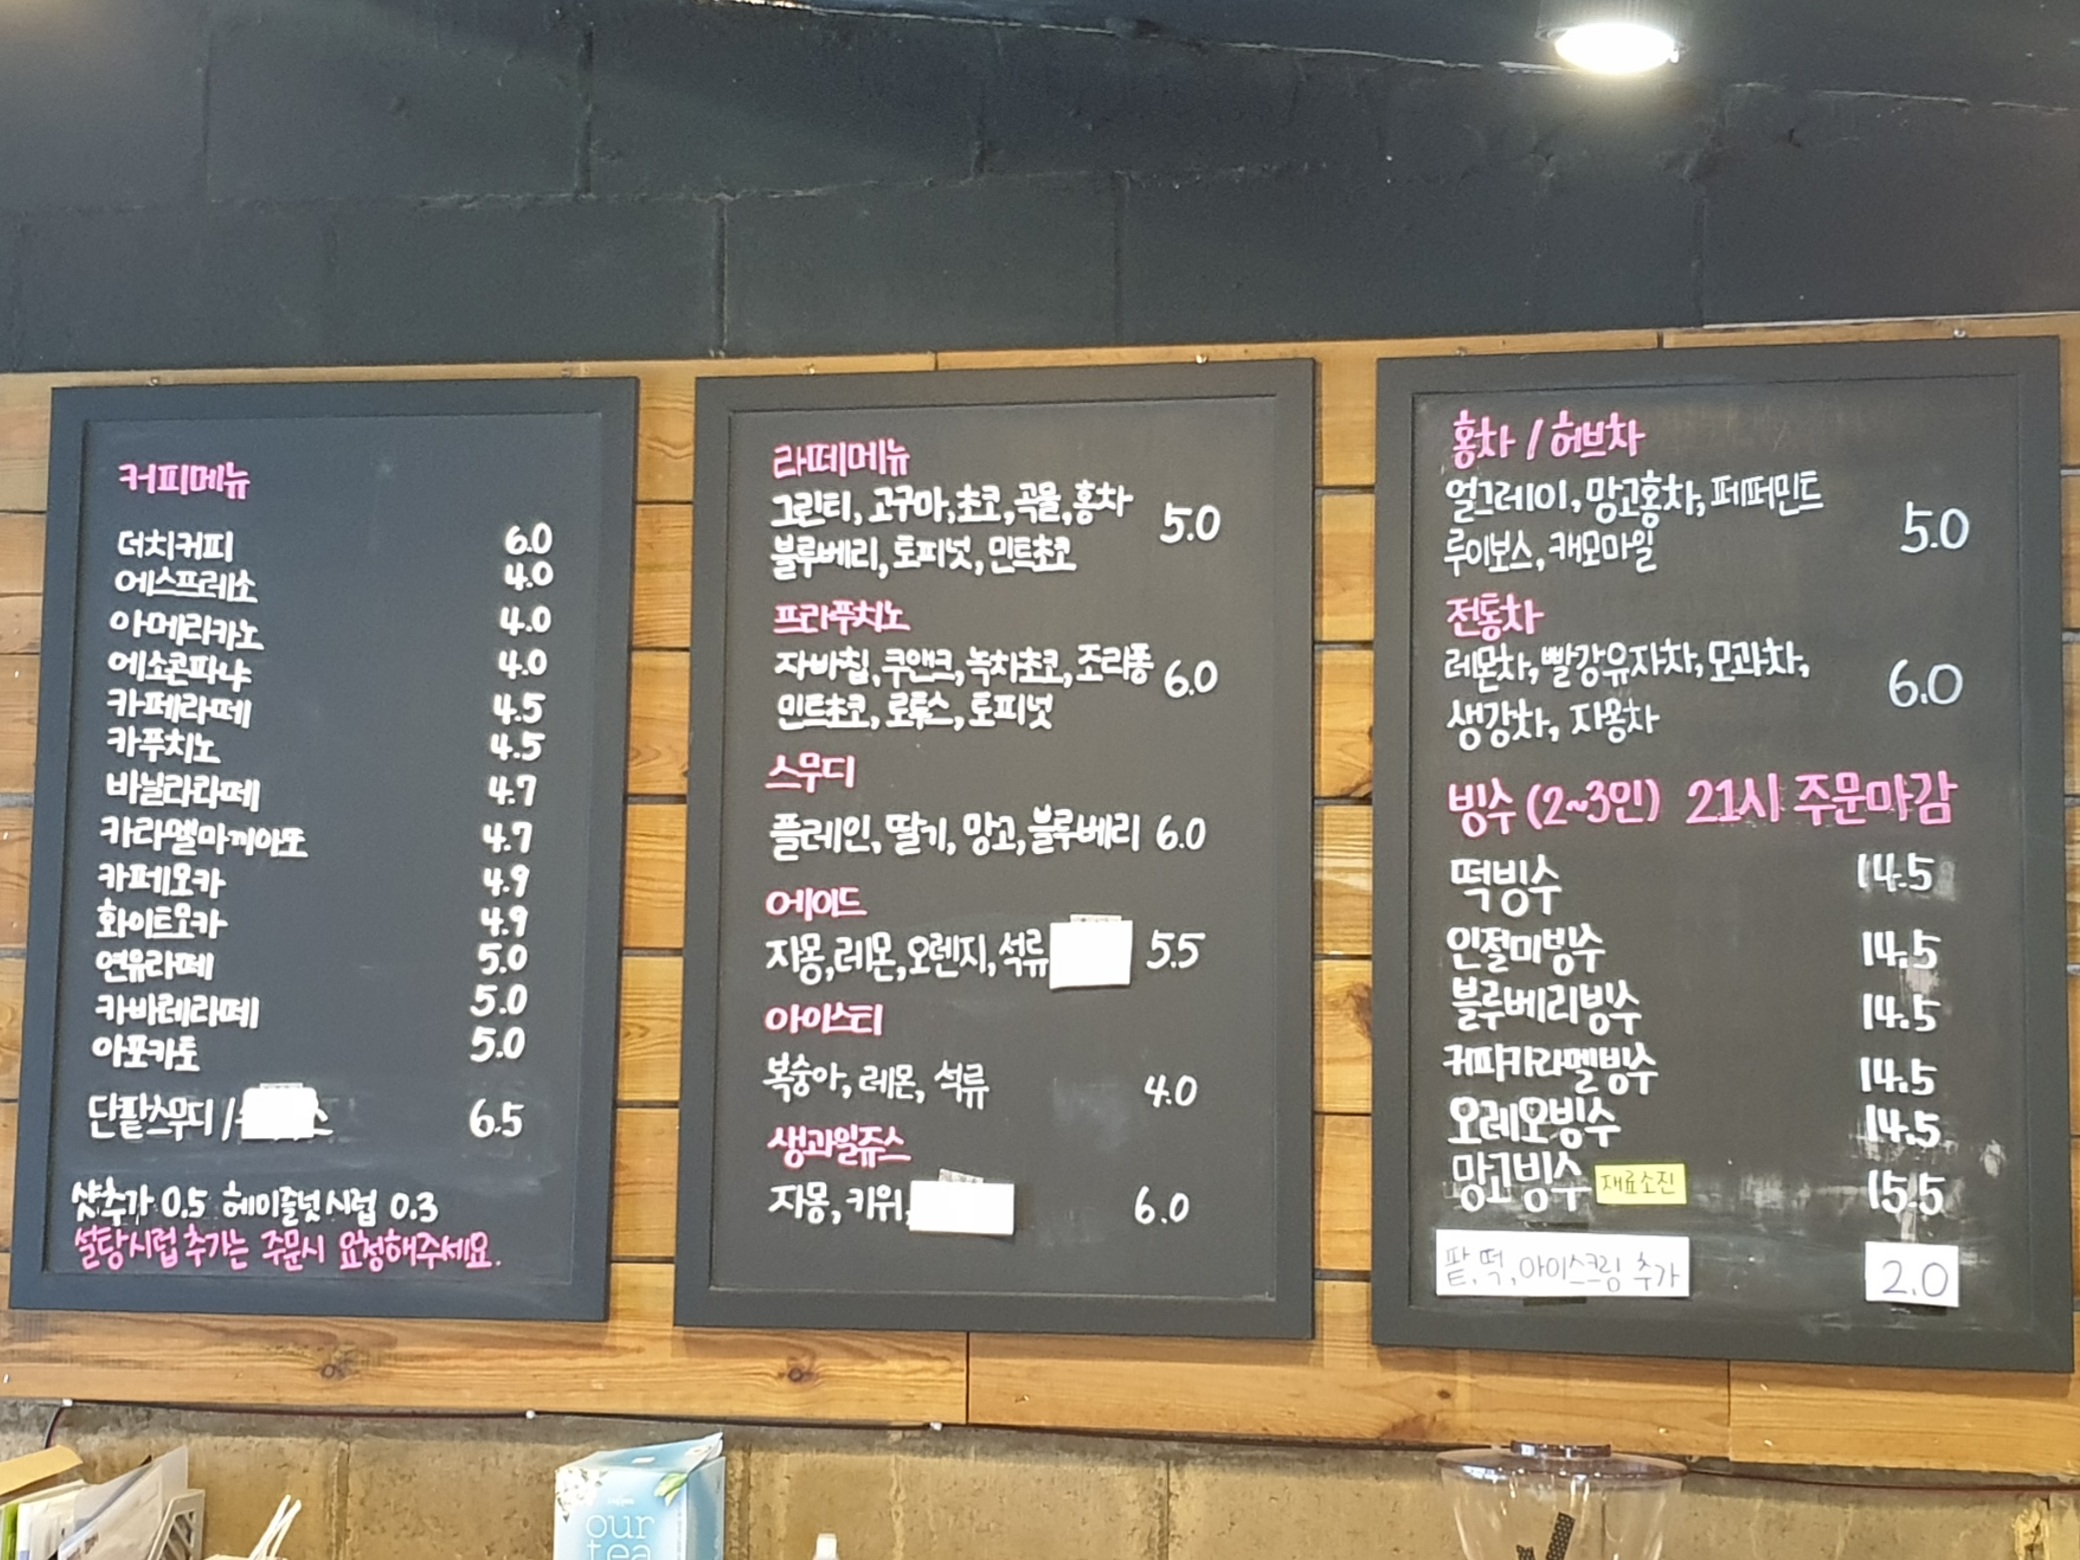 커피메뉴
더치커피 6.0
에스프레소 4.0
아메리카노 4.0
에소콘파냐 4.0
카페라떼 4.5
카푸치노 4.5
바닐라라떼 4.7
카라멜마끼아또 4.7
카페모카 4.9
화이트모카 4.9
연유라떼 5.0
카바레라떼 5.0
아포카토 5.0
단팥스무디 / 6.5
샷추가 0.5 헤이즐넛시럽 0.3
설탕시럽 추가는 주문시 요청해주세요.
라떼메뉴
그린티, 고구마, 초코, 곡물, 홍차
블루베리, 토피넛, 민트초코 5.0
프라푸치노
자바칩, 쿠앤크, 녹차초코, 조리퐁
민트초코, 로투스, 토피넛 6.0
스무디
플레인, 딸기, 망고, 블루베리 6.0
에이드
자몽, 레몬, 오렌지, 석류 5.5
아이스티
복숭아, 레몬, 석류 4.0
생과일쥬스
자몽, 키위, 6.0
홍차 / 허브차
얼그레이, 망고홍차, 페퍼민트
루이보스, 캐모마일 5.0
전통차
레몬차, 빨강유자차, 모과차,
생강차, 자몽차 6.0
빙수 (2~3인) 21시 주문마감
떡빙수 14.5
인절미빙수 14.5
블루베리빙수 14.5
커피카라멜빙수 14.5
오레오빙수 14.5
망고빙수 재료소진 15.5
팥, 떡, 아이스크림 추가 2.0
our
tea